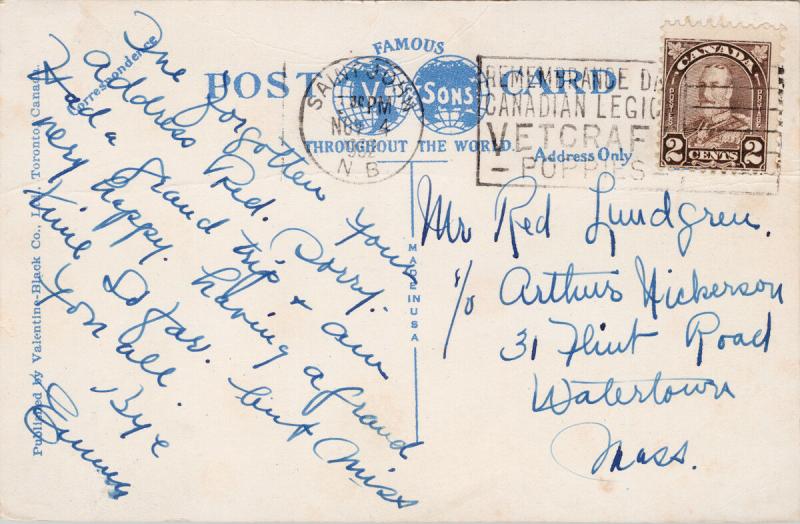 Correspondence
FAMOUS
POST CARD
V. & Sons
THROUGHOUT THE WORLD.
Address Only
SAINT JOHN
PM
NOV 4
1932
N B
REMEMBRANCE DA
CANADIAN LEGIO
VETCRAF
POPPIES
CANADA
POSTES
POSTAGE
2 CENTS 2
Published by Valentine-Black Co., Ltd., Toronto, Canada.
MADE IN USA
I've forgotten your
address Red. Sorry.
Had a grand trip & am
very happy. having a grand
time so far. but miss
you all. Bye
Mr Red Lundgren.
c/o Arthur Hickerson
31 Flint Road
Watertown
Mass.